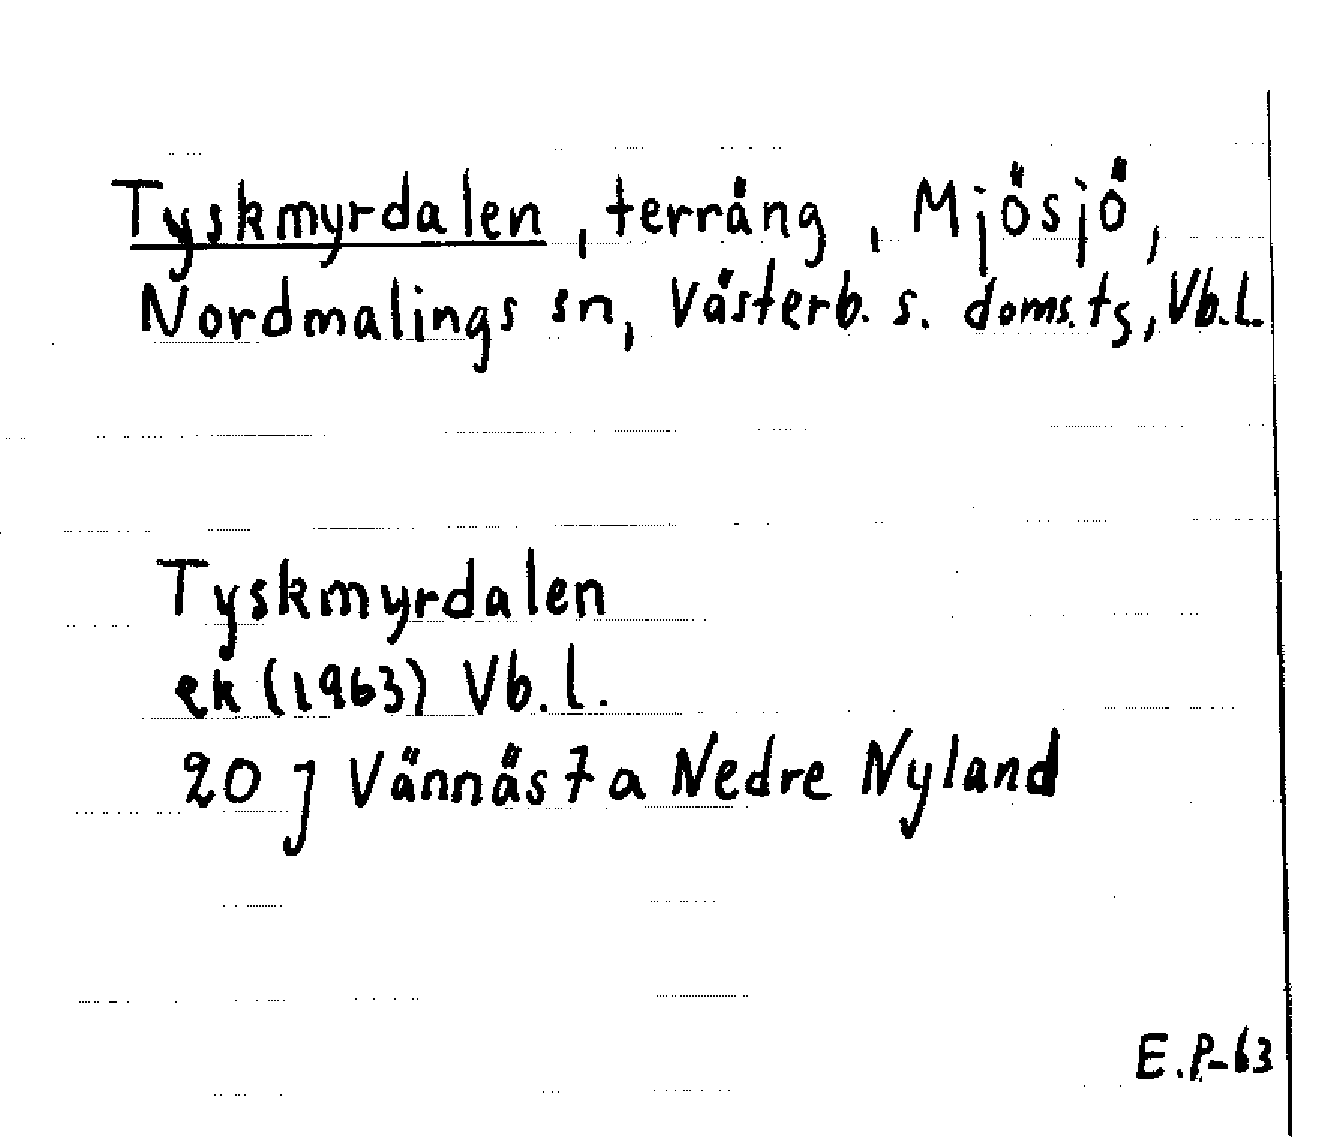 Tyskmyrdalen, terräng, Mjösjö,
Nordmalings sn, Västerb. s. doms. tg, Vb.l.
Tyskmyrdalen
ek (1963) Vb.l.
20 J Vännäs 7 a Nedre Nyland
E.P-63